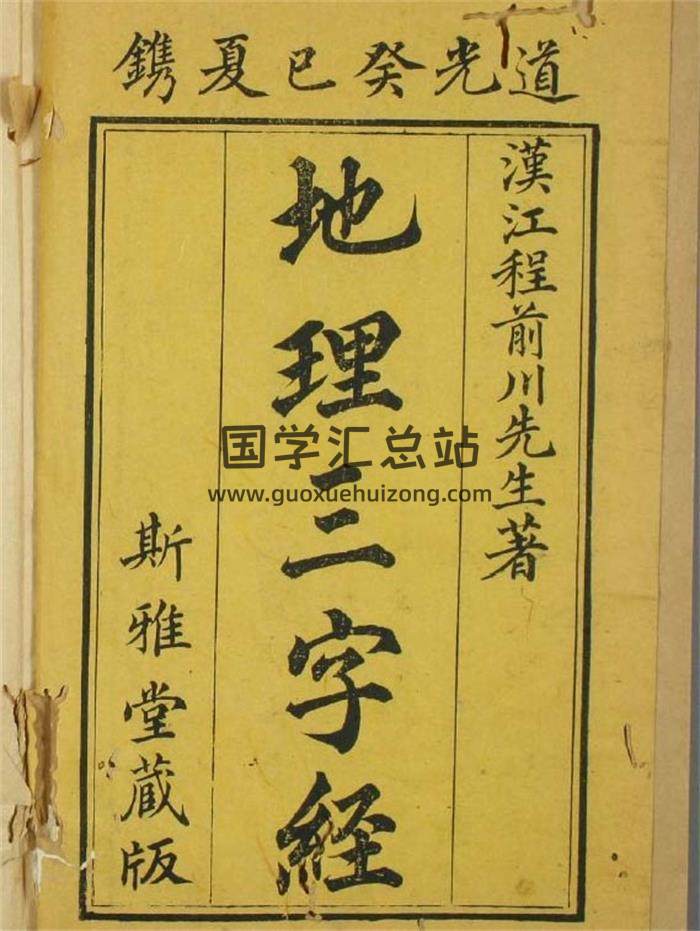 道光癸巳夏鐫
漢江程前川先生著
地理三字經
斯雅堂蔵版
国学汇总站
www.guoxuehuizong.com